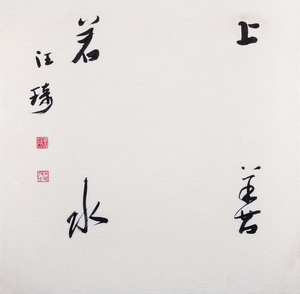 上善
若水
汪琦